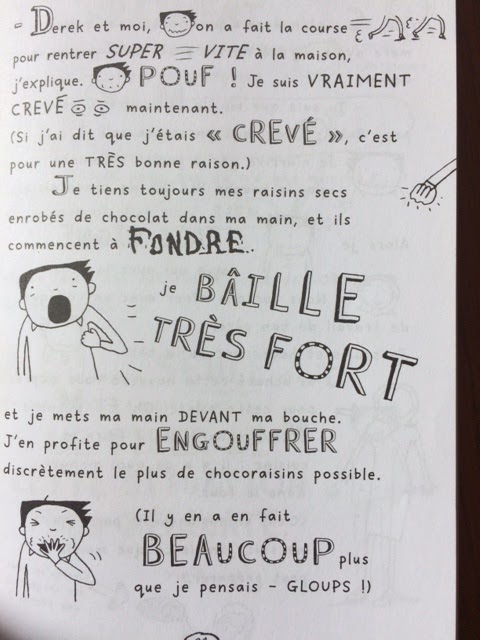 - Derek et moi, on a fait la course
pour rentrer SUPER VITE à la maison,
j'explique. POUF ! Je suis VRAIMENT
CREVÉ maintenant.
(Si j'ai dit que j'étais « CREVÉ », c'est
pour une TRÈS bonne raison.)
Je tiens toujours mes raisins secs
enrobés de chocolat dans ma main, et ils
commencent à FONDRE.
je BÂILLE
TRÈS FORT
et je mets ma main DEVANT ma bouche.
J'en profite pour ENGOUFFRER
discrètement le plus de chocoraisins possible.
(Il y en a en fait
BEAUCOUP plus
que je pensais - GLOUPS !)